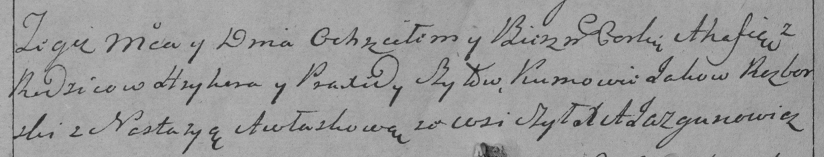 Tegoż Mca y Dnia Ochrzciłem y Bierzm Corkię Ahafię z
Rodzicow Hryhera y Praxedy Rytow, Kumowie Jakow Rozbor
ski z Nastazyą Awłaskową ze wsi Ryt X A Jazgunowicz